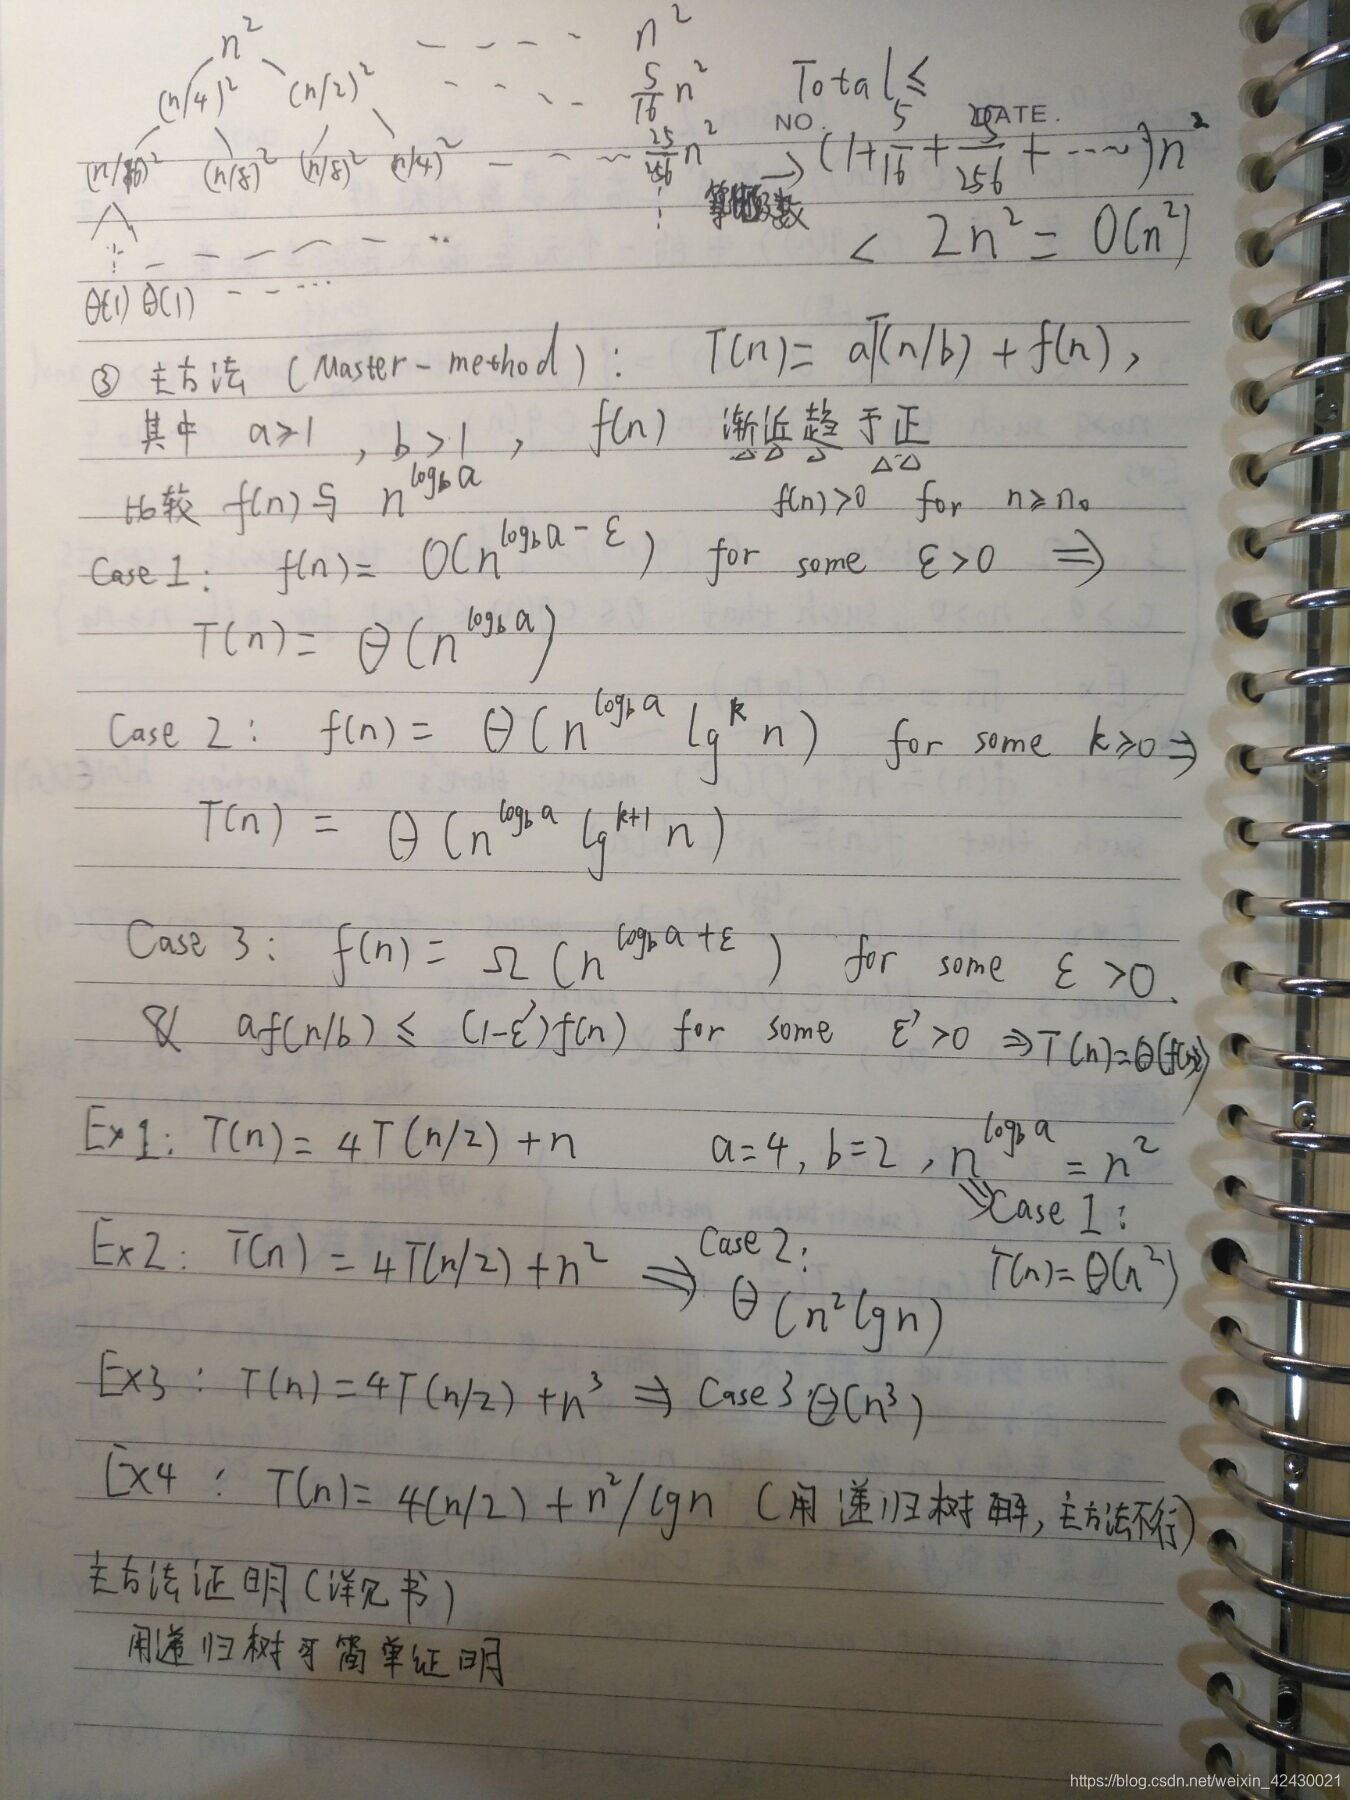 n² - - - - n²
(n/4)² (n/2)² - - - - 5/16 n² Total ≤
NO. DATE.
(n/16)² (n/8)² (n/8)² (n/4)² - - - 25/256 n² → (1+5/16+25/256+……)n²
级数
< 2n² = O(n²)
θ(1) θ(1) - - ···
③ 主方法 (Master-method): T(n) = aT(n/b) + f(n),
其中 a≥1, b>1, f(n) 渐近趋于正
比较 f(n)与 n^{log_b a} f(n)>0 for n≥n₀
Case 1: f(n) = O(n^{log_b a - ε}) for some ε>0 ⇒
T(n) = θ(n^{log_b a})
Case 2: f(n) = θ(n^{log_b a} lg^k n) for some k≥0 ⇒
T(n) = θ(n^{log_b a} lg^{k+1} n)
Case 3: f(n) = Ω(n^{log_b a + ε}) for some ε>0.
& af(n/b) ≤ (1-ε')f(n) for some ε'>0 ⇒ T(n)=θ(f(n))
Ex1: T(n) = 4T(n/2)+n a=4, b=2, n^{log_b a} = n²
⇒ Case 1:
Ex2: T(n) = 4T(n/2)+n² ⇒ Case 2: T(n)=θ(n²)
θ(n²lgn)
Ex3: T(n)=4T(n/2)+n³ ⇒ Case 3 θ(n³)
Ex4: T(n)= 4(n/2)+n²/lgn (用递归树解,主方法不行)
主方法证明(详见书)
用递归树可简单证明
https://blog.csdn.net/weixin_42430021